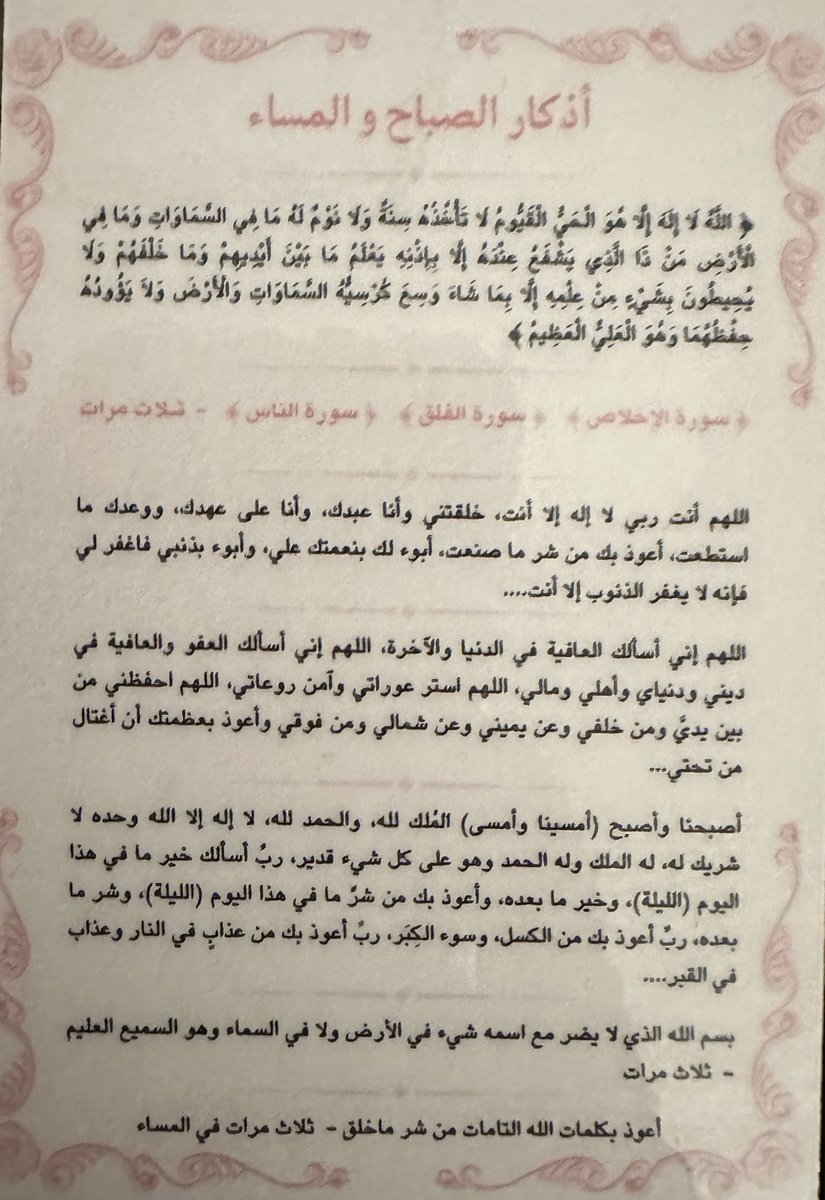 أذكار الصباح و المساء
﴿ اللَّهُ لَا إِلَهَ إِلَّا هُوَ الْحَيُّ الْقَيُّومُ لَا تَأْخُذُهُ سِنَةٌ وَلَا نَوْمٌ لَهُ مَا فِي السَّمَاوَاتِ وَمَا فِي
الْأَرْضِ مَنْ ذَا الَّذِي يَشْفَعُ عِنْدَهُ إِلَّا بِإِذْنِهِ يَعْلَمُ مَا بَيْنَ أَيْدِيهِمْ وَمَا خَلْفَهُمْ وَلَا
يُحِيطُونَ بِشَيْءٍ مِنْ عِلْمِهِ إِلَّا بِمَا شَاءَ وَسِعَ كُرْسِيُّهُ السَّمَاوَاتِ وَالْأَرْضَ وَلَا يَؤُودُهُ
حِفْظُهُمَا وَهُوَ الْعَلِيُّ الْعَظِيمُ ﴾
﴿ سورة الإخلاص ﴾ ﴿ سورة الفلق ﴾ ﴿ سورة الناس ﴾ - ثلاث مرات
اللهم أنت ربي لا إله إلا أنت، خلقتني وأنا عبدك، وأنا على عهدك، ووعدك ما
استطعت، أعوذ بك من شر ما صنعت، أبوء لك بنعمتك علي، وأبوء بذنبي فاغفر لي
فإنه لا يغفر الذنوب إلا أنت....
اللهم إني أسألك العافية في الدنيا والآخرة، اللهم إني أسألك العفو والعافية في
ديني ودنياي وأهلي ومالي، اللهم استر عوراتي وآمن روعاتي، اللهم احفظني من
بين يديَّ ومن خلفي وعن يميني وعن شمالي ومن فوقي وأعوذ بعظمتك أن أغتال
من تحتي...
أصبحنا وأصبح (أمسينا وأمسى) المُلك لله، والحمد لله، لا إله إلا الله وحده لا
شريك له، له الملك وله الحمد وهو على كل شيء قدير، ربِّ أسألك خير ما في هذا
اليوم (الليلة)، وخير ما بعده، وأعوذ بك من شرِّ ما في هذا اليوم (الليلة)، وشر ما
بعده، ربِّ أعوذ بك من الكسل، وسوء الكِبَر، ربِّ أعوذ بك من عذابٍ في النار وعذاب
في القبر....
بسم الله الذي لا يضر مع اسمه شيء في الأرض ولا في السماء وهو السميع العليم
- ثلاث مرات
أعوذ بكلمات الله التامات من شر ماخلق - ثلاث مرات في المساء